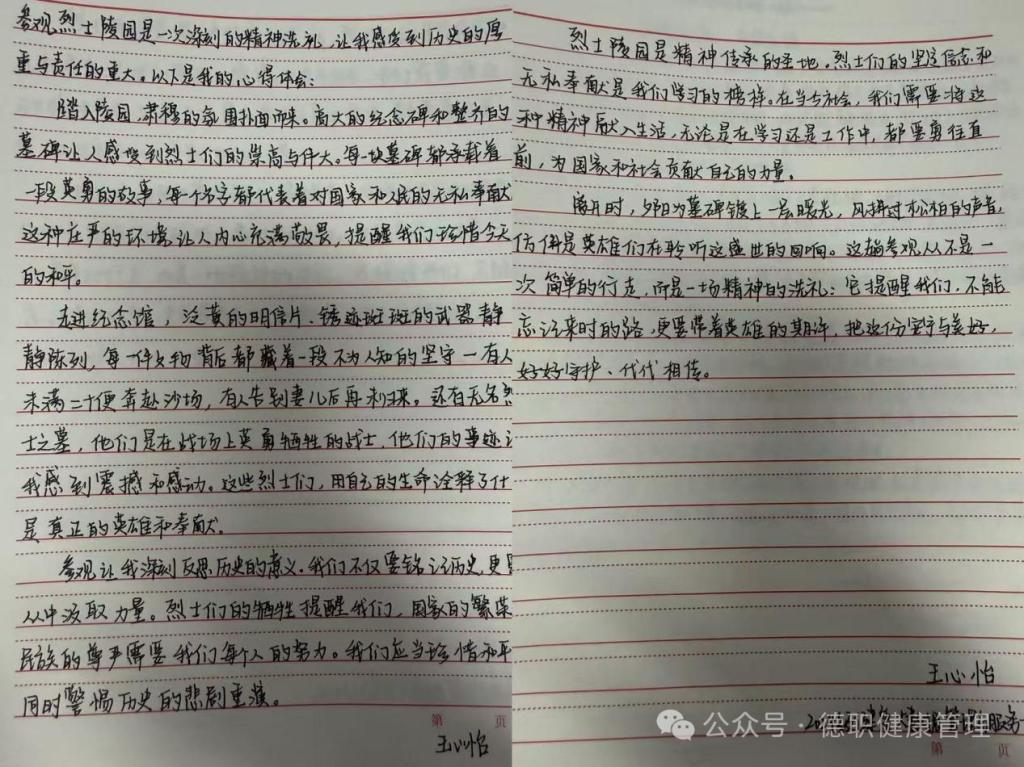 参观烈士陵园是一次深刻的精神洗礼,让我感受到历史的厚
重与责任的重大。以下是我的心得体会:
踏入陵园,肃穆的氛围扑面而来。高大的纪念碑和整齐的
墓碑让人感受到烈士们的崇高与伟大。每一块墓碑都承载着
一段英勇的故事,每个名字都代表着对国家和人民的无私奉献
这种庄严的环境让人内心充满敬畏,提醒我们珍惜今天
的和平。
走进纪念馆,泛黄的明信片、锈迹斑斑的武器静
静陈列,每一件文物背后都藏着一段不为人知的坚守一有人
未满二十便奔赴沙场,有人告别妻儿后再未归来。还有无名烈
士之墓,他们是在战场上英勇牺牲的战士,他们的事迹
我感到震撼和感动。这些烈士们,用自己的生命诠释了什
是真正的英雄和奉献。
参观让我深刻反思历史的意义。我们不仅要铭记历史,更
从中汲取力量。烈士们的牺牲提醒我们,国家的繁荣
民族的尊严需要我们每个人的努力。我们应当珍惜和平
同时警惕历史的悲剧重演。
第 页
王心怡
烈士陵园是精神传承的圣地。烈士们的坚定信念和
无私奉献是我们学习的榜样。在当今社会,我们需要将这
种精神融入生活,无论是在学习还是工作中,都要勇往直
前,为国家和社会贡献自己的力量。
离开时,夕阳为墓碑镀上一层暖光,风拂过松柏的声音,
仿佛是英雄们在聆听这盛世的回响。这趟参观从不是一
次简单的行走,而是一场精神的洗礼:它提醒我们,不能
忘记来时的路,更要带着英雄的期许,把这份坚守与美好,
好好守护、代代相传。
王心怡
公众号·德职健康管理
第 页